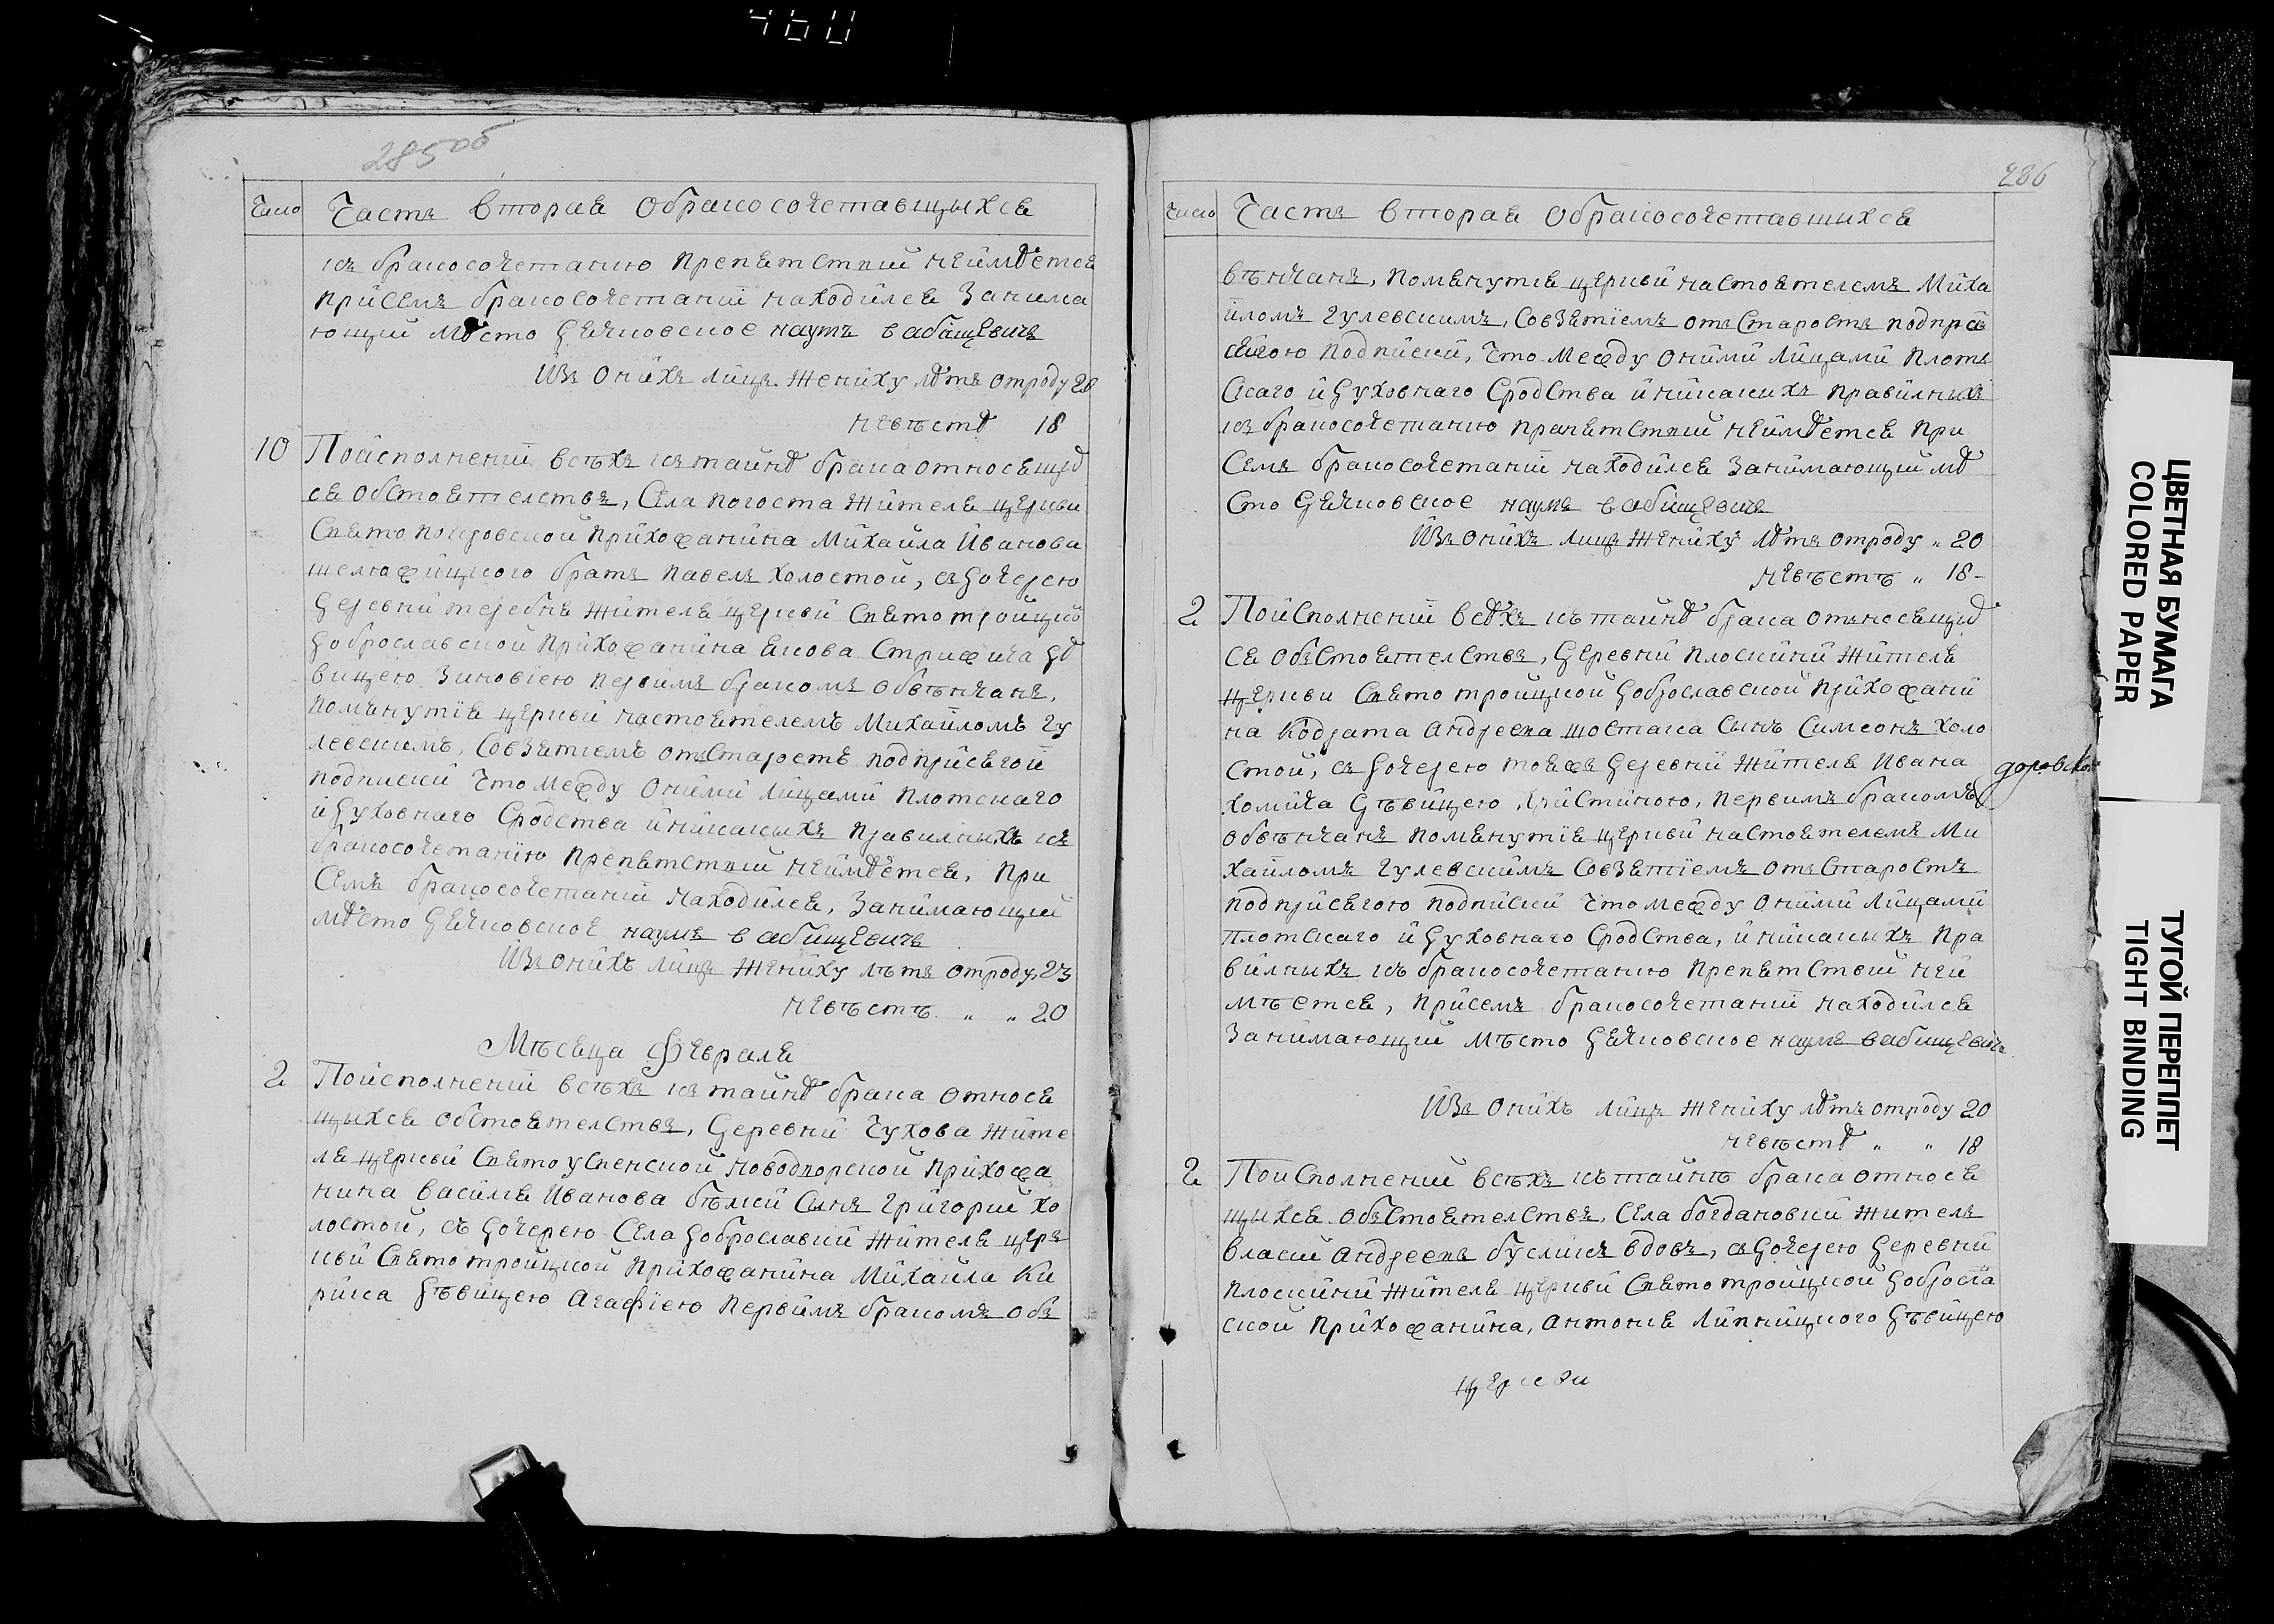 460
285об
Число
Часть вторая о бракосочетавщыхся
къ бракосочетанию препятствий неимѣется
присемъ бракосочетаніи находился занима
ющий мѣсто дячковское наумъ вабищевичъ
Изъ онихъ лицъ жениху лѣтъ отроду 20
невѣстѣ 18
10
Поисполненіи всѣхъ къ таинѣ брака относящид
ся обстоятелствъ, села погоста жителя церкви
Свято покровской прихожанина михаила иванова
шелюжицкого братъ павелъ холостой, съ дочерею
деревни теребня жителя церкви Святотроицкой
доброславской прихожанина якова Стрижича дѣ
вицею зиновіею первимъ бракомъ обвѣнчанъ,
помянутія церкви настоятелемъ михаиломъ гу
левскимъ, совзятіемъ отъстаростъ подприсягой
подписки что между оними лицами плотскаго
идуховнаго сродства иникакихъ правилныхъ къ
бракосочетанію препятствий неимѣется, при
семъ бракосочетаніи находился, занимающий
мѣсто дячковское наумъ вабищевичъ
Изъ онихъ лицъ жениху лѣтъ отроду 23
невѣстѣ „ „ 20
Мѣсяца Февраля
2
Поисполненіи всѣхъ къ таинѣ брака относя
щыхся обстоятелствъ, деревни Чухова жите
ля церкви Святоуспенской новодворской прихожа
нина василя иванова бѣлкей сынъ григорий хо
лостой, съ дочерею села доброславки жителя цер
кви Святотроицкой прихожанина михаила ки
рика дѣвицею агафіею первимъ бракомъ объ
286
Число
Часть вторая о бракосочетавшихся
вѣнчанъ, помянутія церкви настоятелемъ миха
иломъ гулевскимъ, совзятіемъ отъстаростъ подпрся
сягою подписки, что между оними лицами плотъ
скаго идуховнаго сродства иникакихъ правилныхъ
къ бракосочетанию препятствий неимѣется при
семъ бракосочетаніи находился занимающий мѣ
сто дячковское наумъ вабищевичъ
Изъ онихъ лицъ жениху лѣтъ отроду „ 20
невѣстѣ „ 18-
2
Поисполненіи всѣхъ къ таинѣ брака отъносящид
ся объстоятелствъ, деревни плоскини жителя
церкви Святотроицкой доброславской прихожани
на кодрата андреева шостака сынъ симеонъ холо
стой, съ дочерею тояжъ деревни жителя ивана
хомича дѣвицею христиною, первимъ бракомъ
обвѣнчанъ помянутія церкви настоятелемъ ми
хаиломъ гулевскимъ совзятіемъ отъстаростъ
подприсягою подписки что между оними лицами
плотскаго идуховнаго сродства, иникакихъ пра
вилныхъ къ бракосочетанию препятствий неи
мѣется, присемъ бракосочетаніи находился
занимающий мѣсто дячковское наумъ вабищевичъ
Изъ онихъ лицъ жениху лѣтъ отроду 20
невѣстѣ „ „ 18
2
Поисполнении всѣхъ къ таинѣ брака относя
щихся объстоятелствъ, села богдановки жителъ
власий андреевъ бусликъ вдовъ, съ дочерею деревни
плоскини жителя церкви Святотроицкой доброслав
ской прихожанина, антония липницкого дѣвицею
церкви
ЦВЕТНАЯ БУМАГА
COLORED PAPER
ТУГОЙ ПЕРЕПЛЕТ
TIGHT BINDING